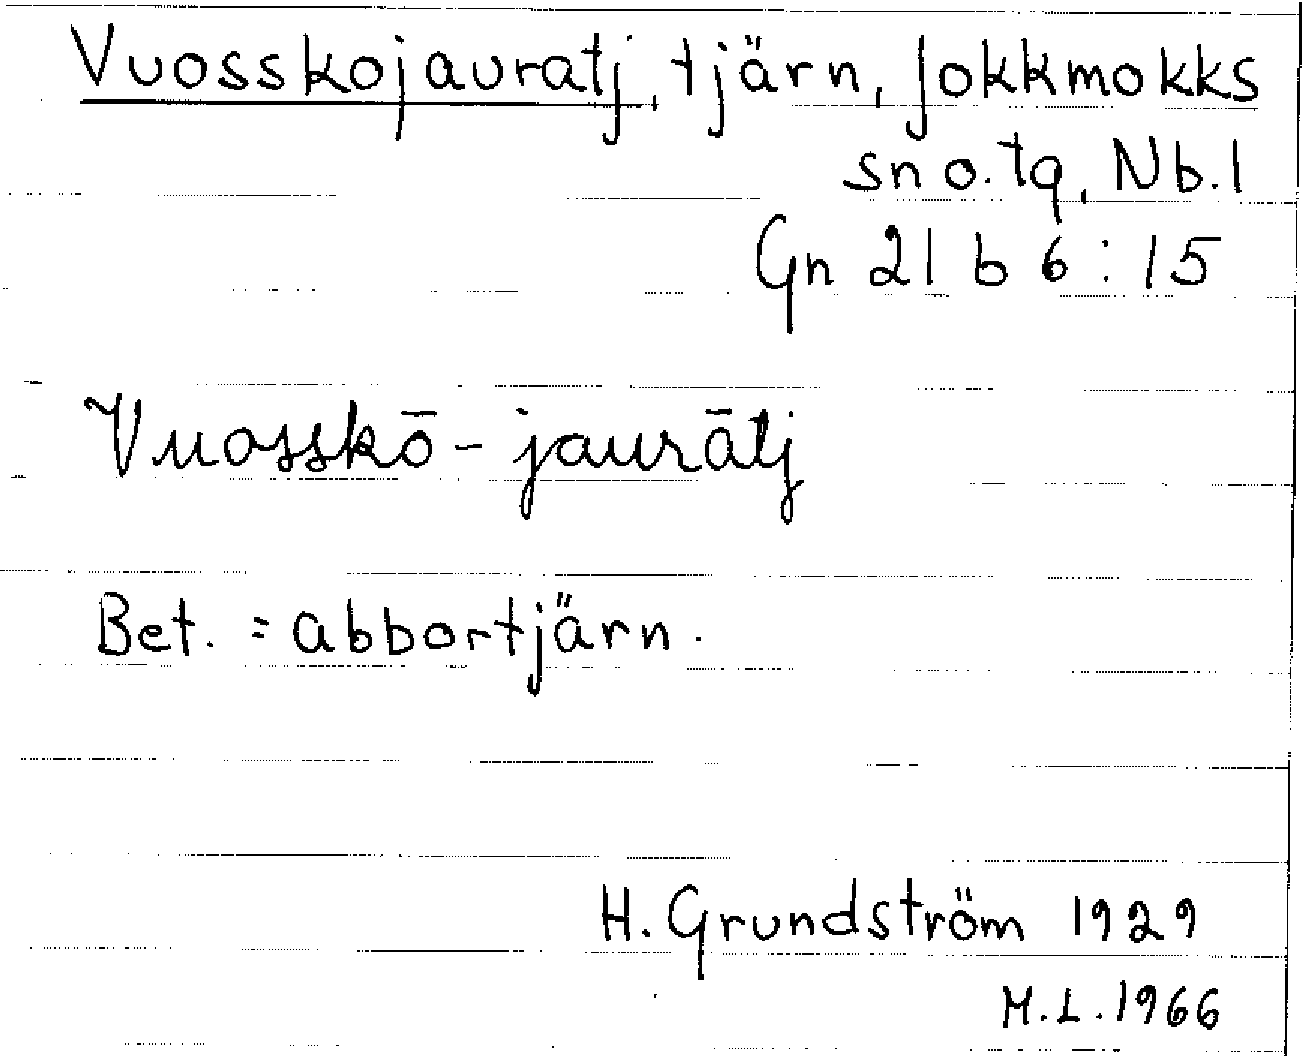 Vuosskojauratj, tjärn, Jokkmokks
sn o. tg, Nb. l
Gn 21 b 6:15
Vuosskō-jaurātj
Bet. = abbortjärn.
H. Grundström 1929
M.L. 1966